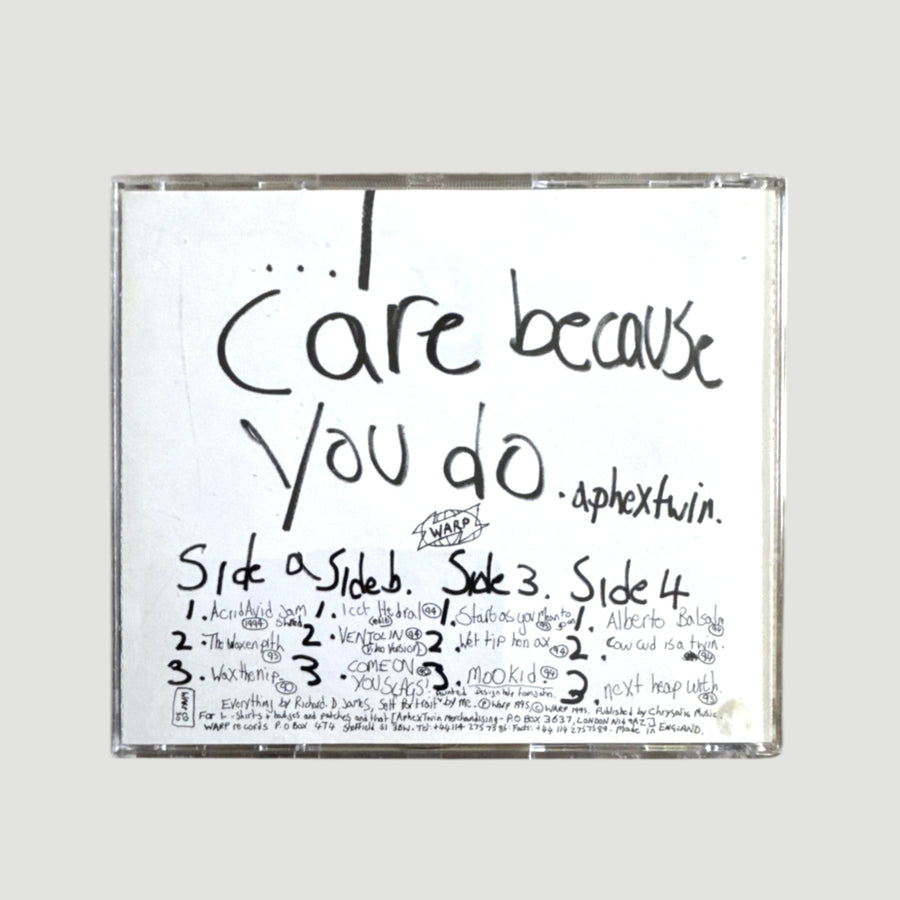 ...I
Care because
you do.
.aphextwin.
WARP
Side a Side b. Side 3. Side 4
1. AcridAvid jam shred 1994
2. The Waxen pith 93
3. Wax the nip. 90
1. Icct Hedral 94 (edit)
2. VENTOLIN 94 (Video Version)
3. COME ON YOU SLAGS!
1. Start as you Mean to go on
2. Wet tip hen ax. 94
3. mookid. 94
1. Alberto Balsalm
2. cow cud is a twin. 94
3. next heap with. 93
Painted Design help from john.
Everything by Richard. D. James, Self Portrait by me. ℗ Warp 1995. © WARP 1995. Published by Chrysalis Music.
For t-shirts + badges and patches and that [AphexTwin Merchandising - P.O BOX 3637, LONDON N16 9AZ]
WARP records P.O Box 474 Sheffield S1 3BW - Tel: +44 114 2757586 - Made in ENGLAND.